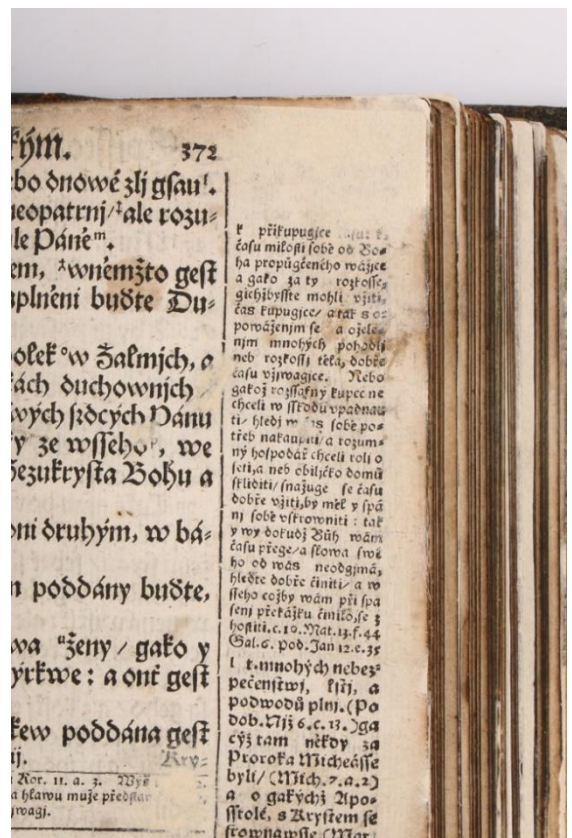 kým. 372
bo dnowé zlj gsau¹.
neopatrnj/ ale rozu-
le Páně ᵐ.
em, wněmžto gest
splněni buďte Du-
olek w Žalmjch, a
ách duchownjch
wých srdcých Pánu
y ze wsseho, we
Bohu a
oni druhým, w bá-
poddány buďte,
wa ženy / gako y
ýrkwe: a onť gest
kew poddána gest
ij. Kry-
Kor. 11. a. 3.
a hlawu muže
k přikupugjce
času milosti sobě od Bo-
ha propůgčeného wážjce
a gako za ty rozkosse,
gichžbysste mohli vžiti,
čas kupugjce/ a tak s o-
powáženjm se a ožele-
njm mnohých pohodlj
neb rozkossj těla, dobře
času vžjwagjce. Nebo
gakož rozssafný kupec ne
chceli w sskodu vpadnau
ti/ hledj sobě po-
třeb nakaupiti/ a rozum-
ný hospodář chceli roli o
seti, a neb obiljčko domů
skliditi/ snažuge se času
dobře vžiti, by měl y spa
nj sobě vskrowniti: tak
y wy dokudž Bůh wám
času přege/ a slowa swé
ho od wás neodgjmá,
hleďte dobře činiti/ a w
sseho cožby wám při spa
senj překážku činilo, se z
hostiti. c. 10. Mat. 13. f. 44
Gal. 6. pod. Jan 12. e. 35
l t. mnohých nebez-
pečenstwj, křjž, a
podwodů plnj. (Po
dob. Njž 6. c. 13. )ga
cýž tam někdy za
Proroka Micheásse
byli/ (Mich. 7. a. 2)
a o gakýchž Apo-
sstolé, s Krystem se
srownáwsse (Mar.